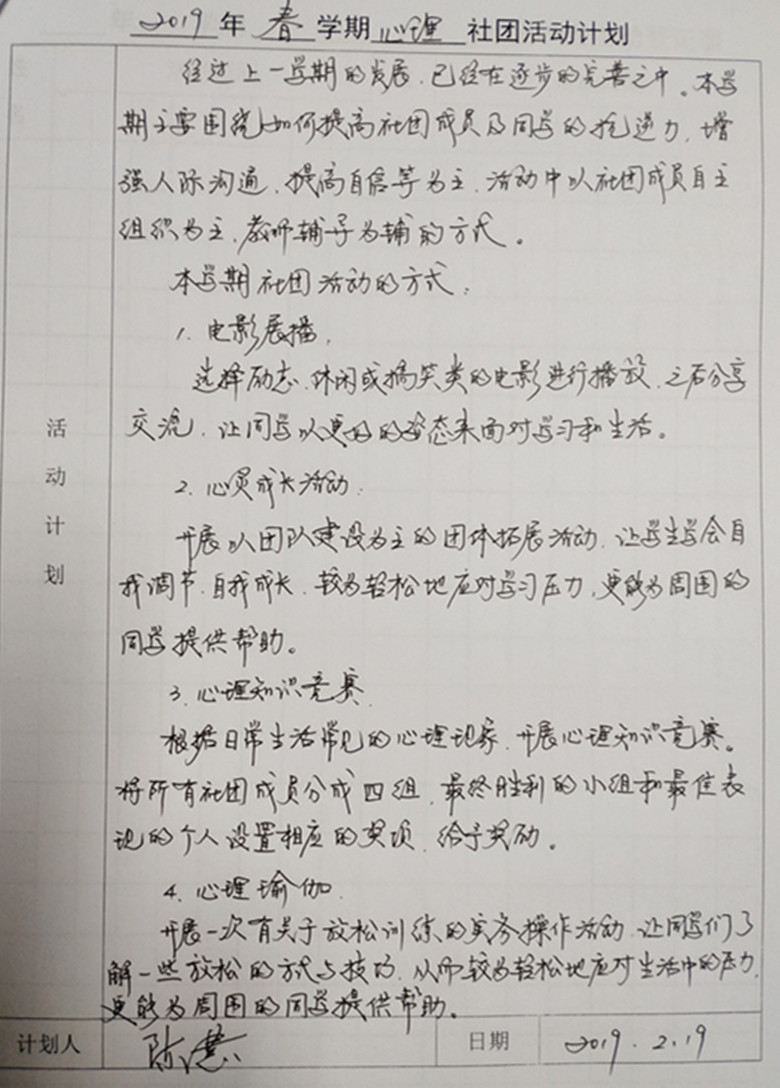 2019 年 春 学期 心理 社团活动计划
经过上一学期的发展,已经在逐步的完善之中。本学
期主要围绕如何提高社团成员及同学的抗逆力,增
强人际沟通,提高自信等为主,活动中以社团成员自主
组织为主,教师辅导为辅的方式。
本学期社团活动的方式:
1. 电影展播,
选择励志、休闲或搞笑类的电影进行播放,之后分享
交流,让同学以更好的姿态来面对学习和生活。
2. 心灵成长活动:
开展以团队建设为主的团体拓展活动,让学生学会自
我调节,自我成长,较为轻松地应对学习压力,更能为周围的
同学提供帮助。
3. 心理知识竞赛
根据日常生活常见的心理现象,开展心理知识竞赛。
将所有社团成员分成四组,最终胜利的小组和最佳表
现的个人设置相应的奖项,给予奖励。
4. 心理瑜伽
开展一次有关于放松训练的实务操作活动,让同学们了
解一些放松的方式与技巧,从而较为轻松地应对生活中的压力,
更能为周围的同学提供帮助。
活动计划
计划人 陈慧 日期 2019.2.19